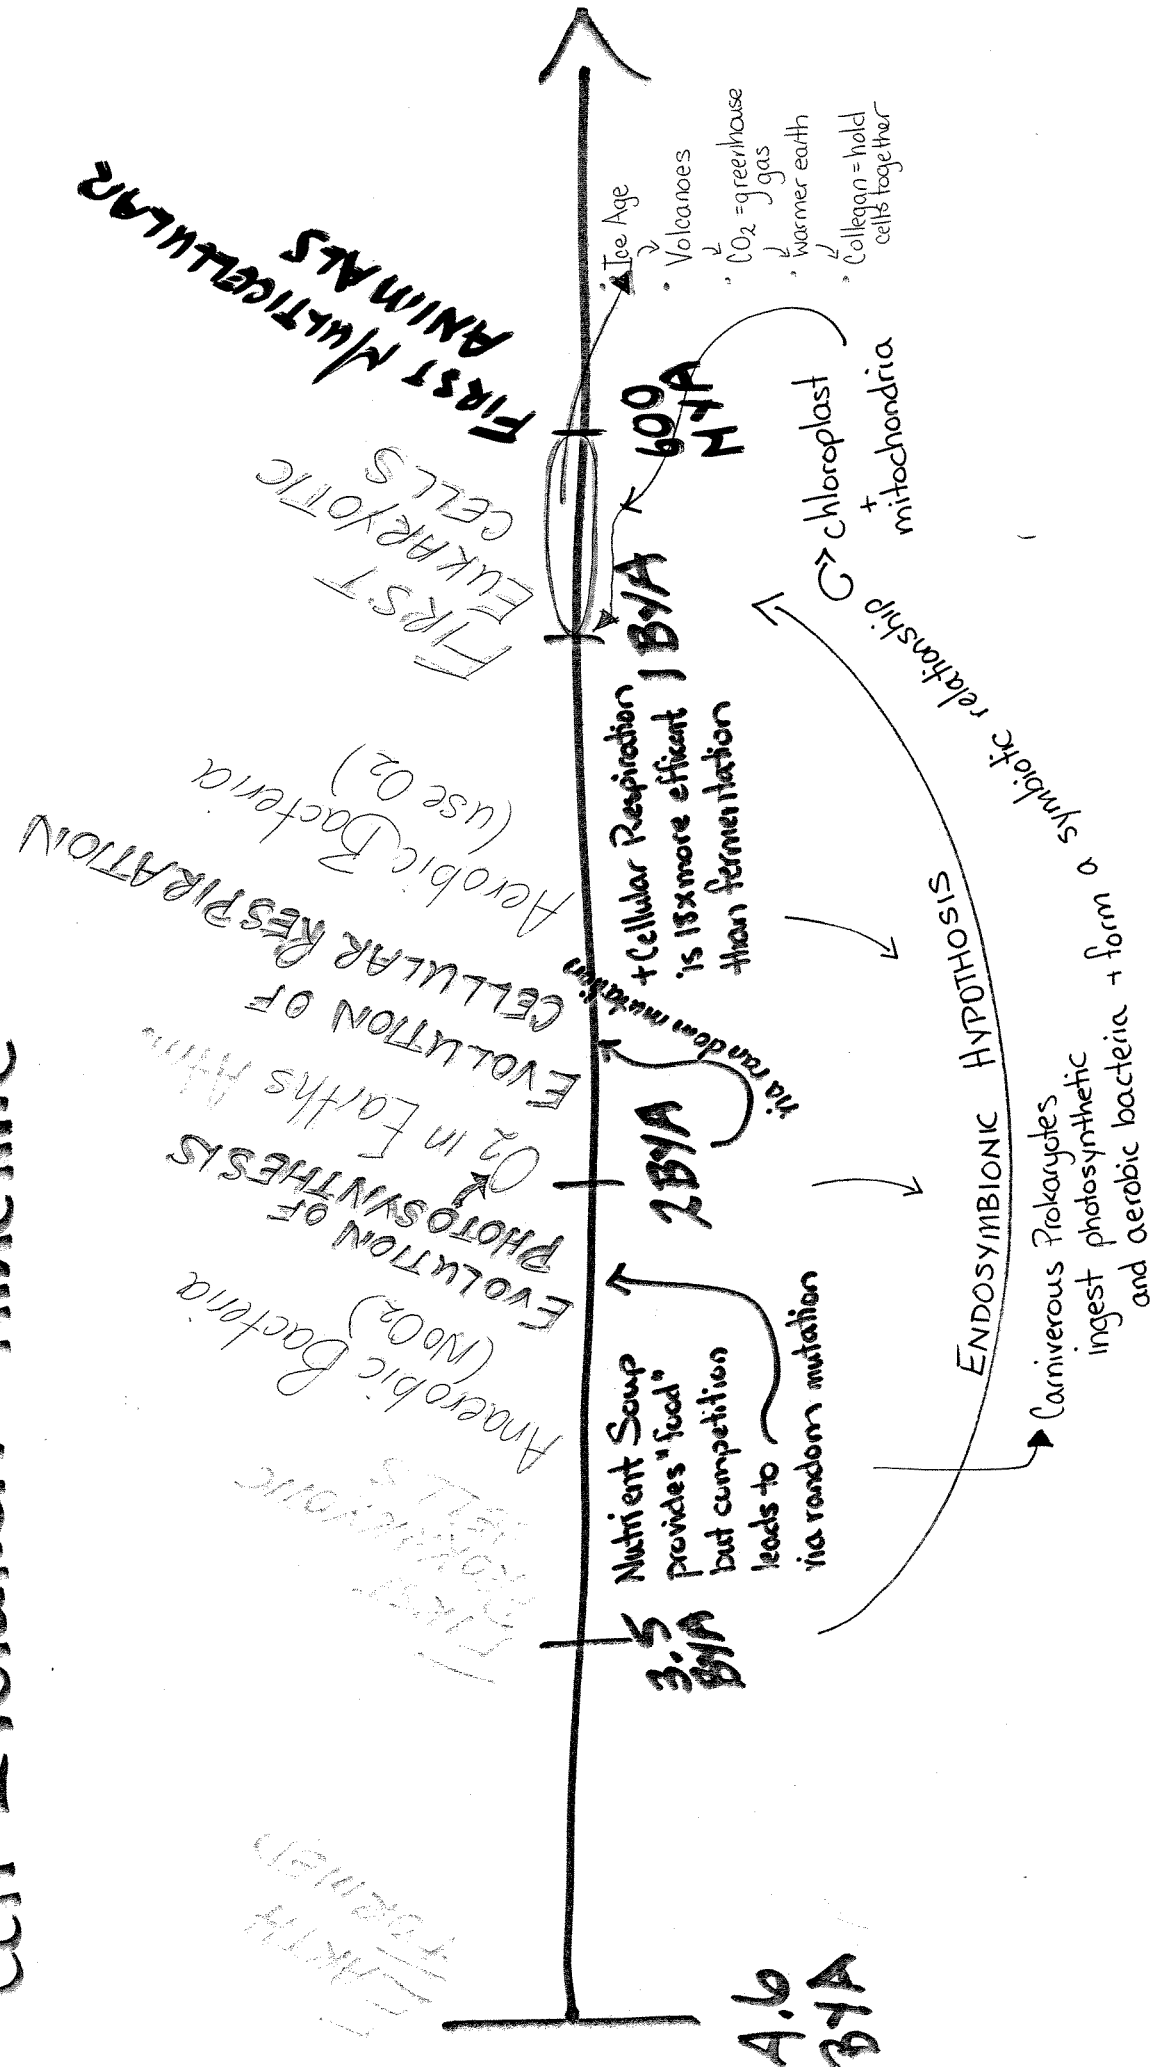 Cell Evolution Timeline
EARTH
FORMED
4.6
BYA
FIRST
PROKARYOTIC
CELLS
3.5
BYA
Anaerobic Bacteria
(No O2)
Nutrient Soup
provides "food"
but competition
leads to
via random mutation
EVOLUTION OF
PHOTOSYNTHESIS
O2 in Earths Atm.
2BYA
via random mutation
EVOLUTION OF
CELLULAR RESPIRATION
Aerobic Bacteria
(use O2)
+ Cellular Respiration
is 18x more efficent
than fermentation
FIRST
EUKARYOTIC
CELLS
1 BYA
FIRST MULTICELLULAR
ANIMALS
600
MYA
• Ice Age
• Volcanoes
• CO2 = greenhouse
gas
• warmer earth
• Collegan = hold
cells together
ENDOSYMBIONIC HYPOTHOSIS
Carniverous Prokaryotes
ingest photosynthetic
and aerobic bacteria + form a symbiotic relationship
chloroplast
+
mitochondria